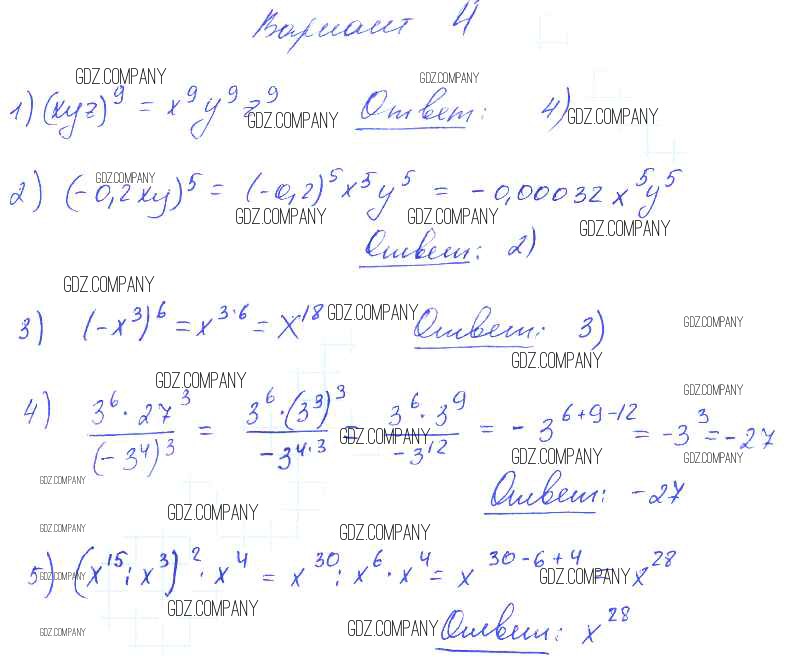 Вариант 4
GDZ.COMPANY GDZ.COMPANY
1) (xyz)⁹ = x⁹y⁹z⁹ Ответ: 4)
GDZ.COMPANY GDZ.COMPANY
GDZ.COMPANY
2) (-0,2xy)⁵ = (-0,2)⁵x⁵y⁵ = -0,00032x⁵y⁵
GDZ.COMPANY GDZ.COMPANY GDZ.COMPANY
Ответ: 2)
GDZ.COMPANY
3) (-x³)⁶ = x³·⁶ = x¹⁸ GDZ.COMPANY Ответ: 3) GDZ.COMPANY
GDZ.COMPANY
GDZ.COMPANY GDZ.COMPANY
4) 3⁶·27³/(-3⁴)³ = 3⁶·(3³)³/-3⁴·³ = 3⁶·3⁹/-3¹² = -3⁶⁺⁹⁻¹² = -3³ = -27
GDZ.COMPANY GDZ.COMPANY GDZ.COMPANY
GDZ.COMPANY Ответ: -27
GDZ.COMPANY
GDZ.COMPANY GDZ.COMPANY
5) (x¹⁵:x³)²·x⁴ = x³⁰:x⁶·x⁴ = x³⁰⁻⁶⁺⁴ = x²⁸
GDZ.COMPANY GDZ.COMPANY
GDZ.COMPANY
GDZ.COMPANY GDZ.COMPANY Ответ: x²⁸